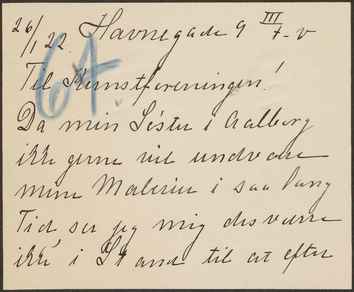 26/1 22. Havnegade 9 III t.v
64.
Til Kunstforeningen!
Da min Søster i Aalborg
ikke gerne vil undvære
mine Malerier i saa lang
Tid ser jeg mig desværre
ikke i Stand til at efter